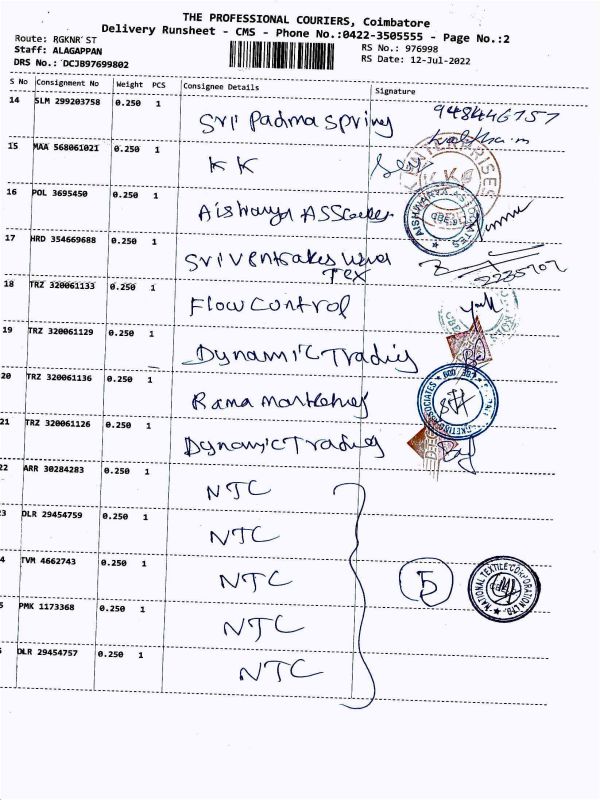 THE PROFESSIONAL COURIERS, Coimbatore
Delivery Runsheet - CMS - Phone No.:0422-3505555 - Page No.:2
Route: RGKNR ST
Staff: ALAGAPPAN
DRS No.: DCJB97699802
RS No.: 976998
RS Date: 12-Jul-2022
S No Consignment No Weight PCS Consignee Details Signature
14 SLM 299203758 0.250 1 Sri Padma Spring 948446757
15 MAA 568061021 0.250 1 KK
16 POL 3695450 0.250 1 Aishwarya
17 HRD 354669688 0.250 1 Sri Tex
18 TRZ 320061133 0.250 1 Flow Control
19 TRZ 320061129 0.250 1 Dynamic Trading
20 TRZ 320061136 0.250 1 Rama
21 TRZ 320061126 0.250 1 Dynamic Trading
22 ARR 30284283 0.250 1 NTC
3 DLR 29454759 0.250 1 NTC
4 TVM 4662743 0.250 1 NTC 5 NATIONAL TEXTILE CORPORATION LTD.
5 PMK 1173368 0.250 1 NTC
DLR 29454757 0.250 1 NTC